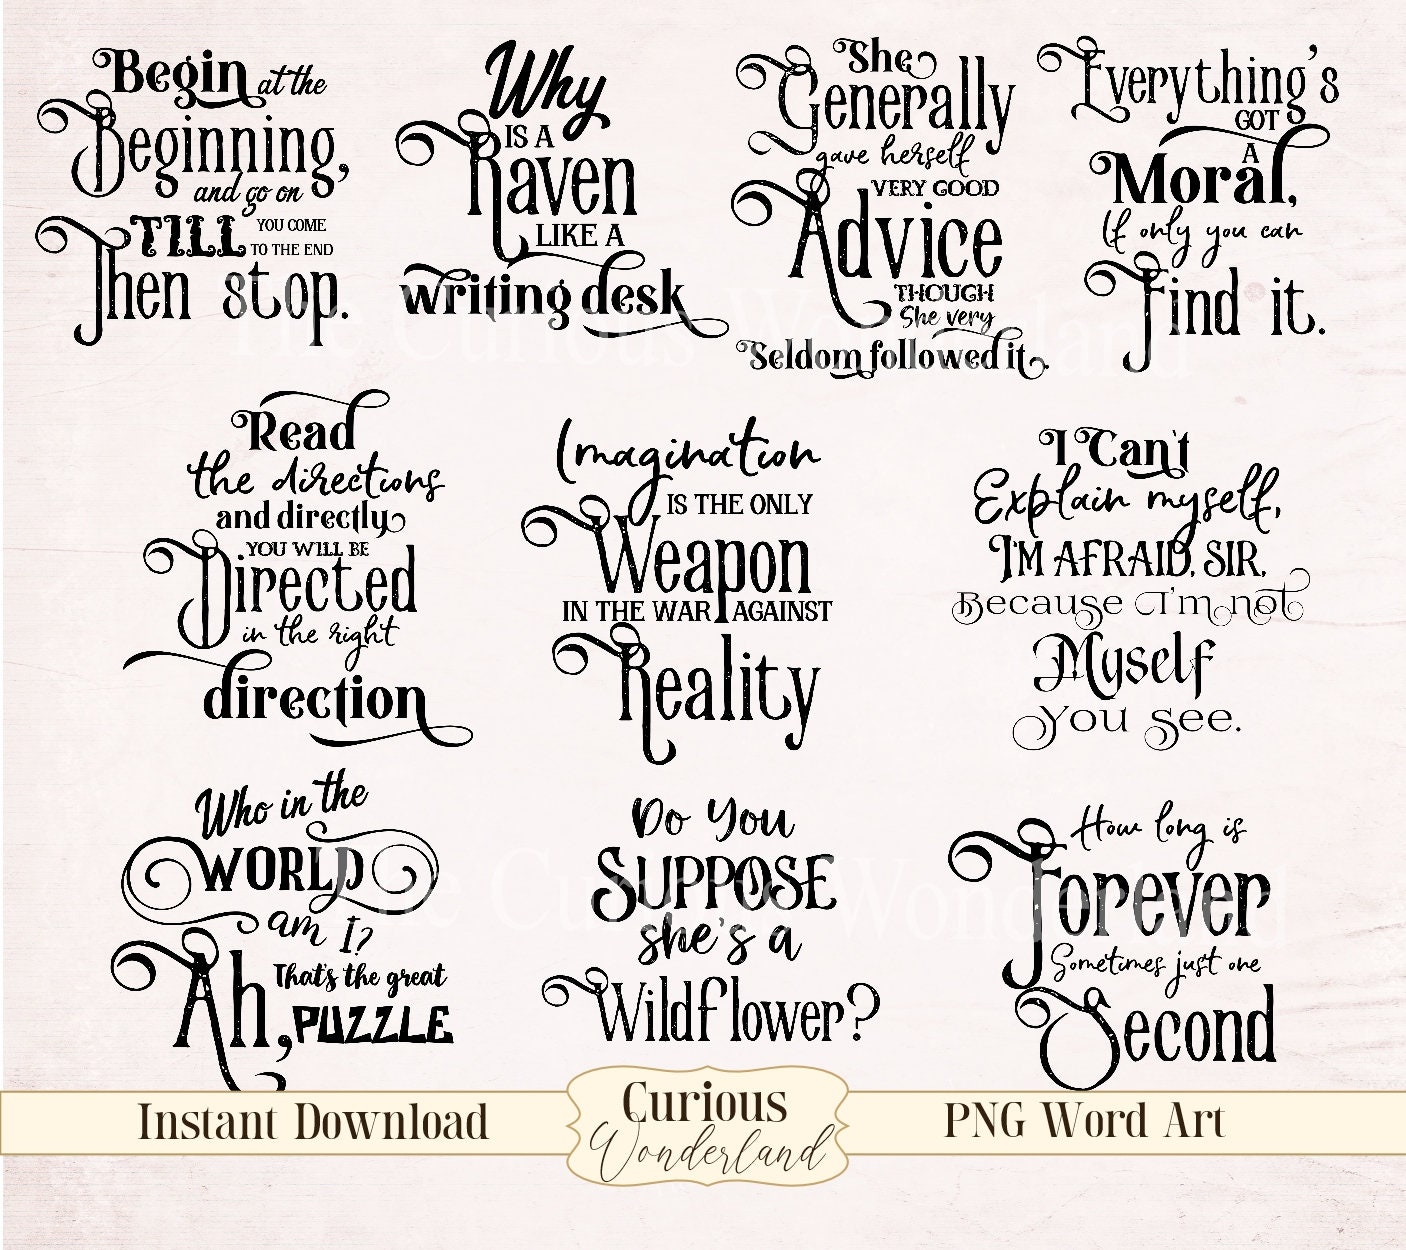 Begin at the
Beginning,
and go on
TILL YOU COME
TO THE END
Then stop.
Why
IS A
Raven
LIKE A
writing desk
She
Generally
gave herself
VERY GOOD
Advice
THOUGH
She very
Seldom followed it.
Everything's
GOT
A
Moral,
If only you can
Find it.
Read
the directions
and directly
YOU WILL BE
Directed
in the right
direction
Imagination
IS THE ONLY
Weapon
IN THE WAR AGAINST
Reality
I Can't
Explain myself,
I'M AFRAID, SIR,
Because I'm not
Myself
You see.
Who in the
WORLD
am I?
Ah, That's the great
PUZZLE
Do You
SUPPOSE
she's a
Wildflower?
How long is
Forever
Sometimes just one
Second
The Curious Wonderland
The Curious Wonderland
Instant Download
Curious
Wonderland
PNG Word Art